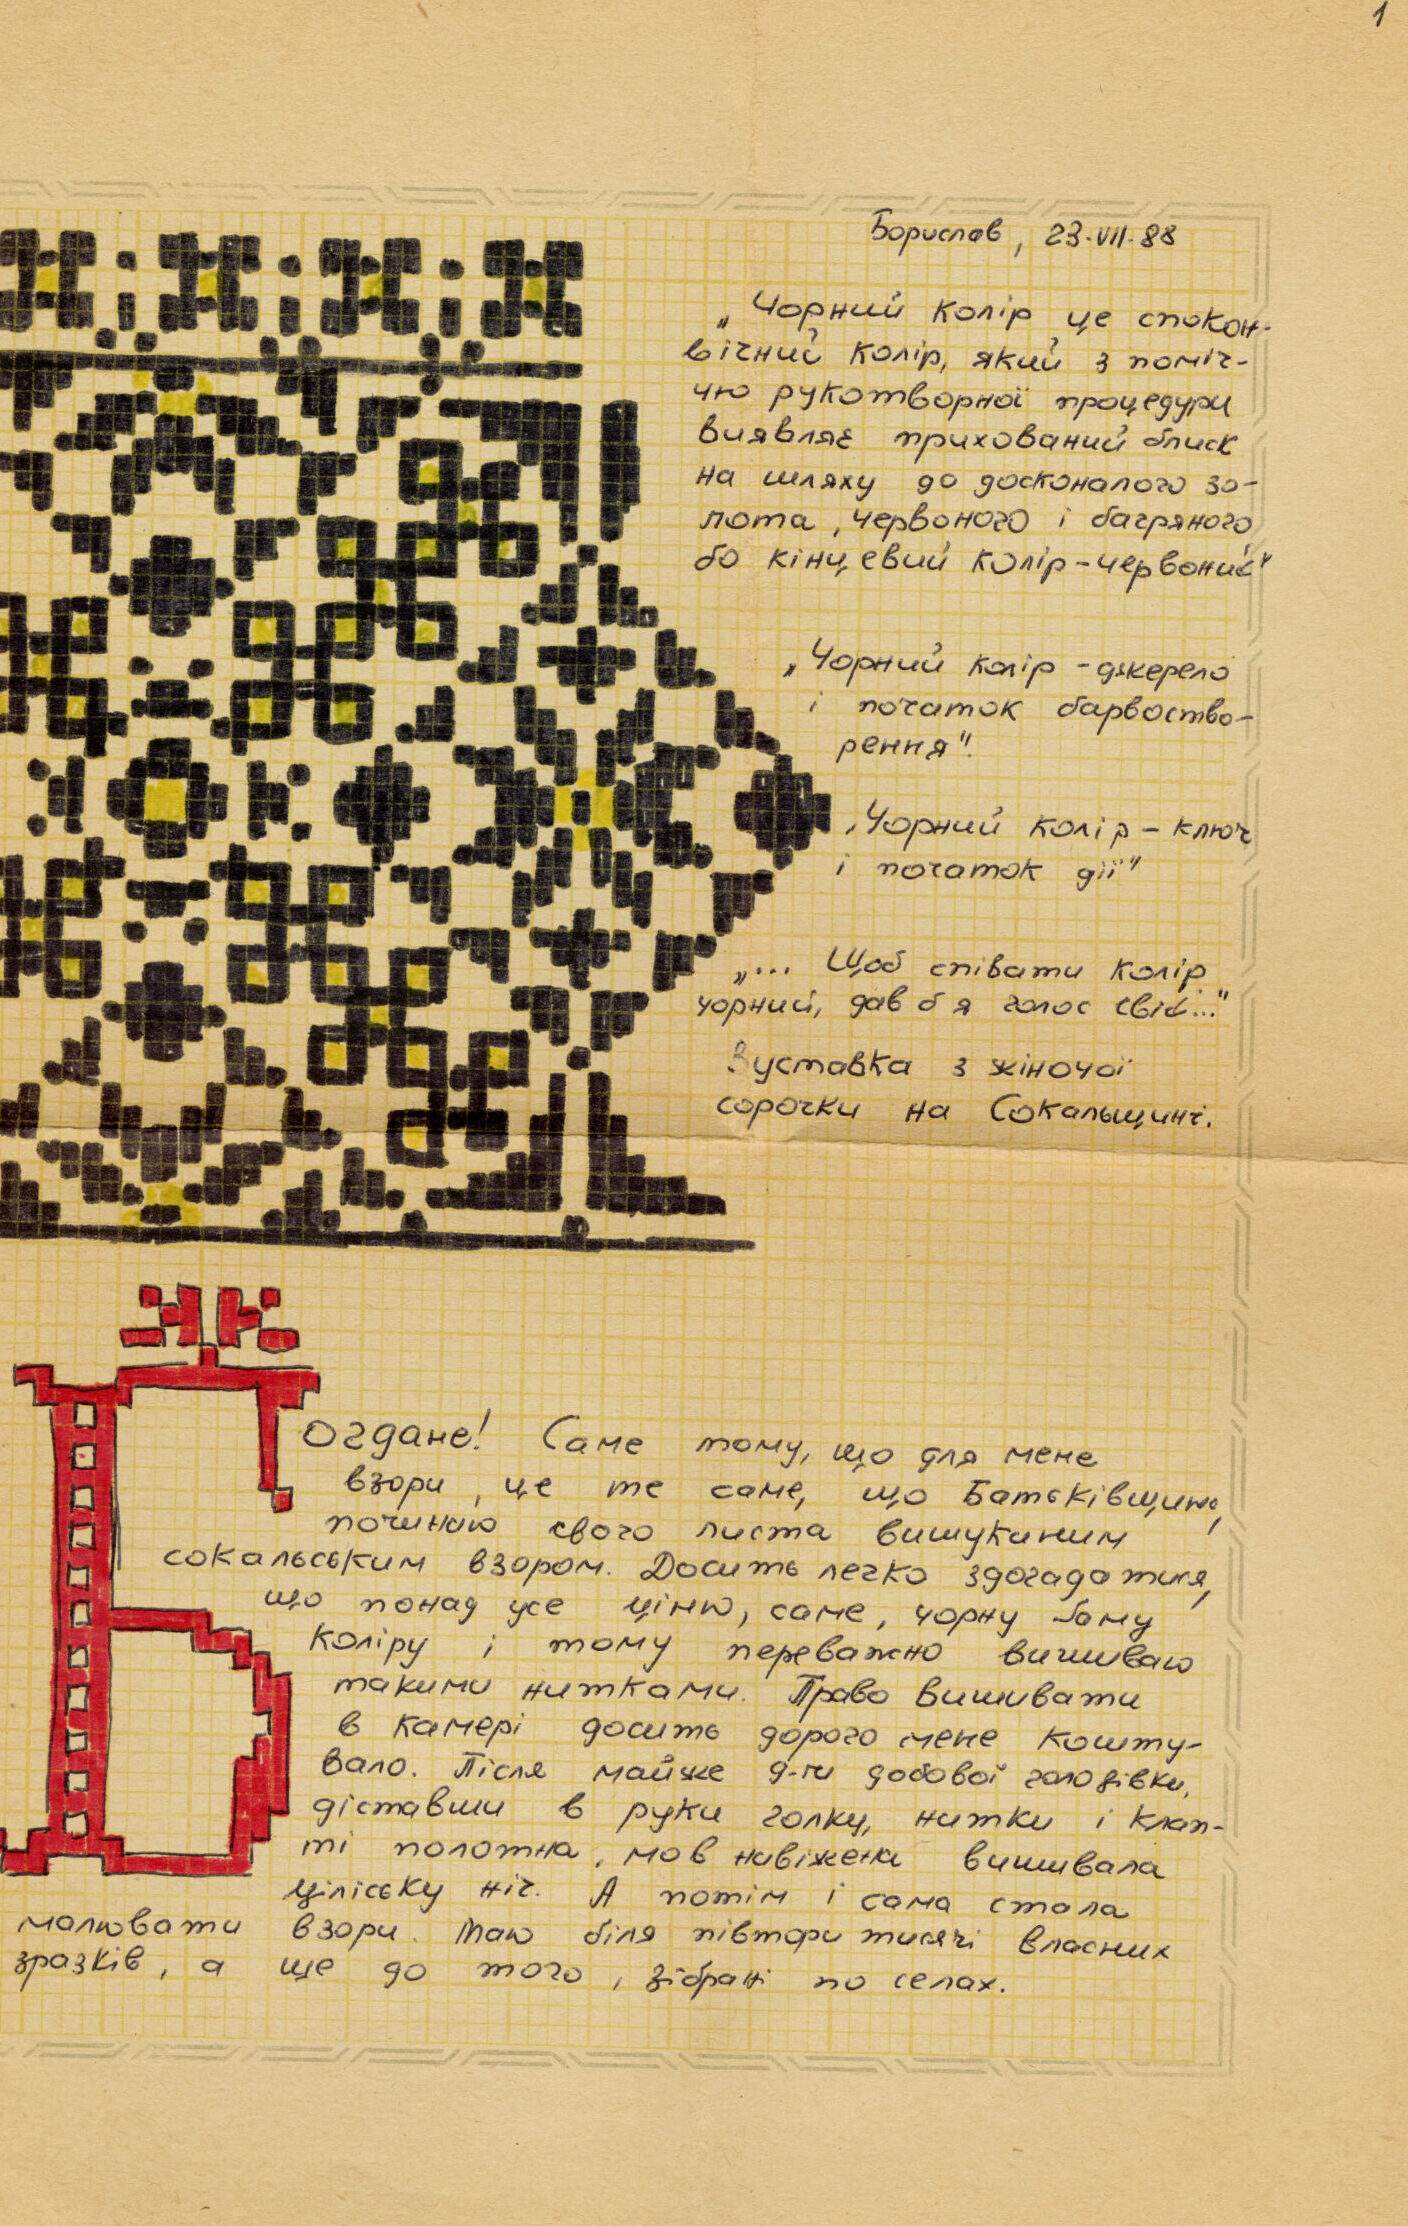 1
Борислав, 23·VII·88
„Чорний колір це спокон-
вічний колір, який з поміч-
чю рукотворної процедури
виявляє прихований блиск
на шляху до досконалого зо-
лота, червоного і багряного
бо кінцевий колір – червоний"
„Чорний колір – джерело
і початок барвоство-
рення".
„Чорний колір – ключ
і початок дії"
„... Щоб співати колір
чорний, дав б я голос свій..."
Вуставка з жіночої
сорочки на Сокальщині.
Богдане! Саме тому, що для мене
взори, це те саме, що Батьківщина,
починаю свого листа вишуканим
сокальським взором. Досить легко здогадатися,
що понад усе ціню, саме, чорну гаму
коліру і тому переважно вишиваю
такими нитками. Право вишивати
в камері досить дорого мене кошту-
вало. Після майже 9-ти добової голодівки,
діставши в руки голку, нитки і клап-
ті полотна, мов навіжена вишивала
ціліську ніч. А потім і сама стала
малювати взори. Маю біля півтори тисячі власних
зразків, а ще до того, зібрані по селах.